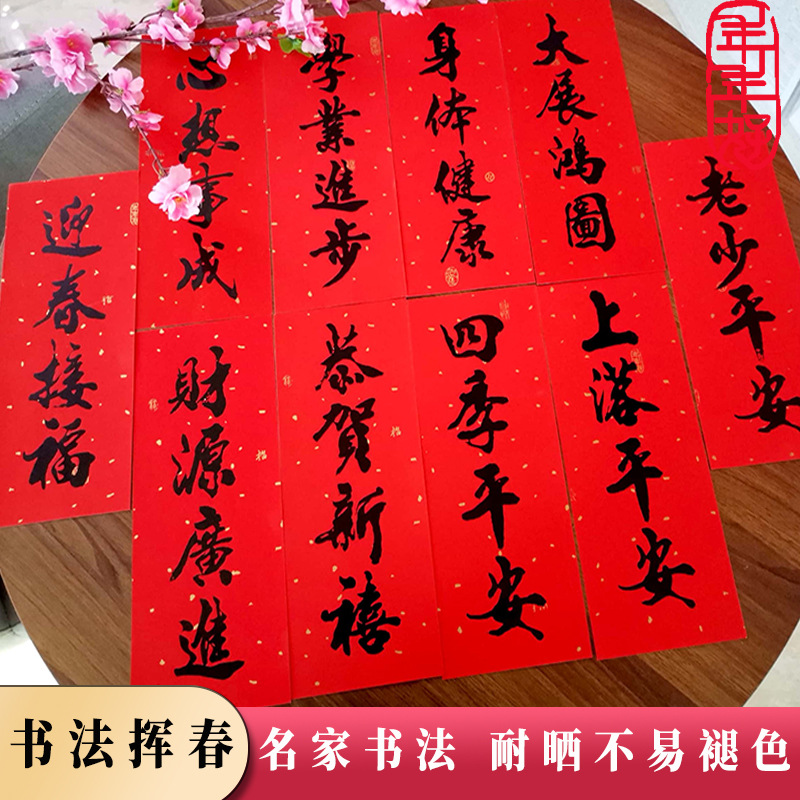 心想事成
學業進步
身体健康
大展鴻圖
老少平安
迎春接福
財源廣進
恭賀新禧
四季平安
上落平安
书法挥春
名家书法 耐晒不易褪色